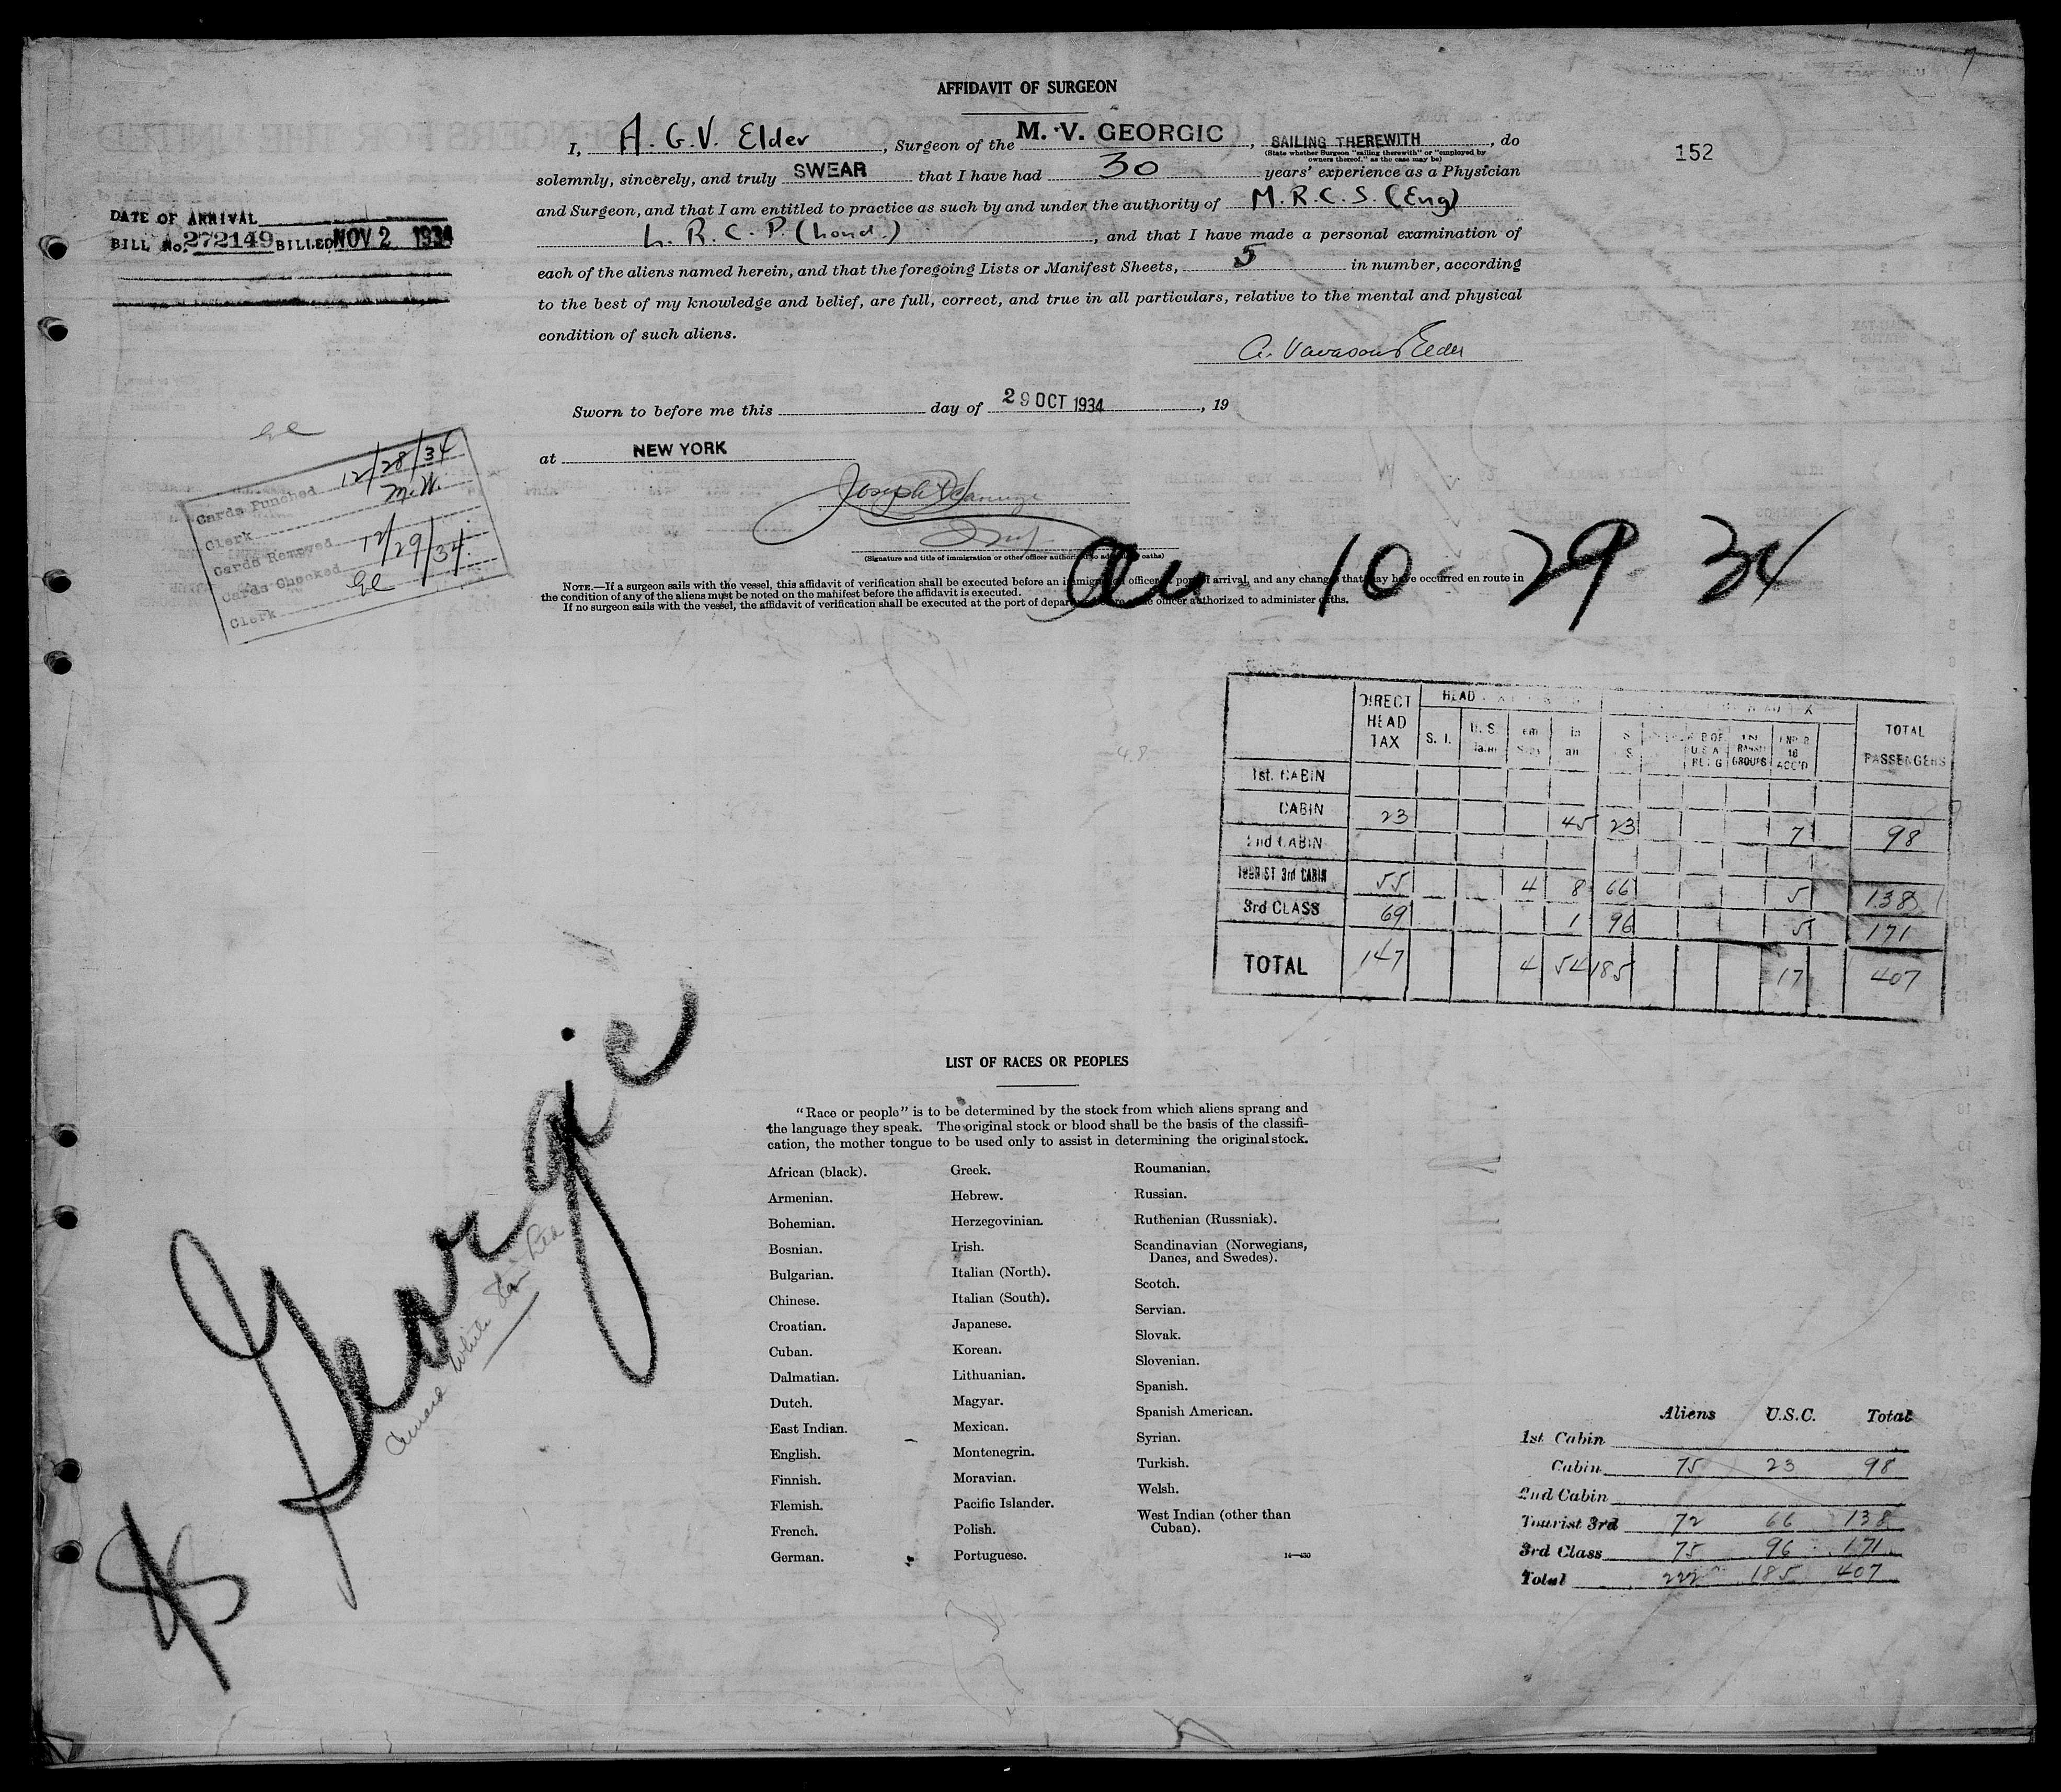 AFFIDAVIT OF SURGEON
I, A. G. V. Elder, Surgeon of the M. V. GEORGIC, SAILING THEREWITH, do
(State whether Surgeon "sailing therewith" or "employed by
owners thereof," as the case may be)
152
solemnly, sincerely, and truly SWEAR that I have had 30 years' experience as a Physician
and Surgeon, and that I am entitled to practice as such by and under the authority of M.R.C.S. (Eng)
L. R. C. P. (Lond.), and that I have made a personal examination of
each of the aliens named herein, and that the foregoing Lists or Manifest Sheets, 5 in number, according
to the best of my knowledge and belief, are full, correct, and true in all particulars, relative to the mental and physical
condition of such aliens.
DATE OF ARRIVAL
BILL No. 272149 BILLED NOV 2 1934
Sworn to before me this day of 29 OCT 1934, 19
at NEW YORK
Cards Punched 12/28/34
Clerk M.W.
Cards Removed
Cards Checked 12/29/34
Clerk
(Signature and title of immigration or other officer authorized to administer oaths)
NOTE.—If a surgeon sails with the vessel, this affidavit of verification shall be executed before an immigration officer at port of arrival, and any change that may have occurred en route in
the condition of any of the aliens must be noted on the manifest before the affidavit is executed.
If no surgeon sails with the vessel, the affidavit of verification shall be executed at the port of departure before an officer authorized to administer oaths.
10 29 34
DIRECT HEAD TAX HEAD S. I. U. S. TOTAL PASSENGERS
1st. CABIN
CABIN 23 45 23 7 98
2nd CABIN
TOURIST 3rd CABIN 55 4 8 66 5 138
3rd CLASS 69 1 96 5 171
TOTAL 147 4 54 185 17 407
Georgic
White Star
LIST OF RACES OR PEOPLES
"Race or people" is to be determined by the stock from which aliens sprang and
the language they speak. The original stock or blood shall be the basis of the classifi-
cation, the mother tongue to be used only to assist in determining the original stock.
African (black).
Armenian.
Bohemian.
Bosnian.
Bulgarian.
Chinese.
Croatian.
Cuban.
Dalmatian.
Dutch.
East Indian.
English.
Finnish.
Flemish.
French.
German.
Greek.
Hebrew.
Herzegovinian.
Irish.
Italian (North).
Italian (South).
Japanese.
Korean.
Lithuanian.
Magyar.
Mexican.
Montenegrin.
Moravian.
Pacific Islander.
Polish.
Portuguese.
Roumanian.
Russian.
Ruthenian (Russniak).
Scandinavian (Norwegians,
Danes, and Swedes).
Scotch.
Servian.
Slovak.
Slovenian.
Spanish.
Spanish American.
Syrian.
Turkish.
Welsh.
West Indian (other than
Cuban).
14—430
Aliens U.S.C. Total
1st Cabin
Cabin 75 23 98
2nd Cabin
Tourist 3rd 72 66 138
3rd Class 75 96 171
Total 222 185 407